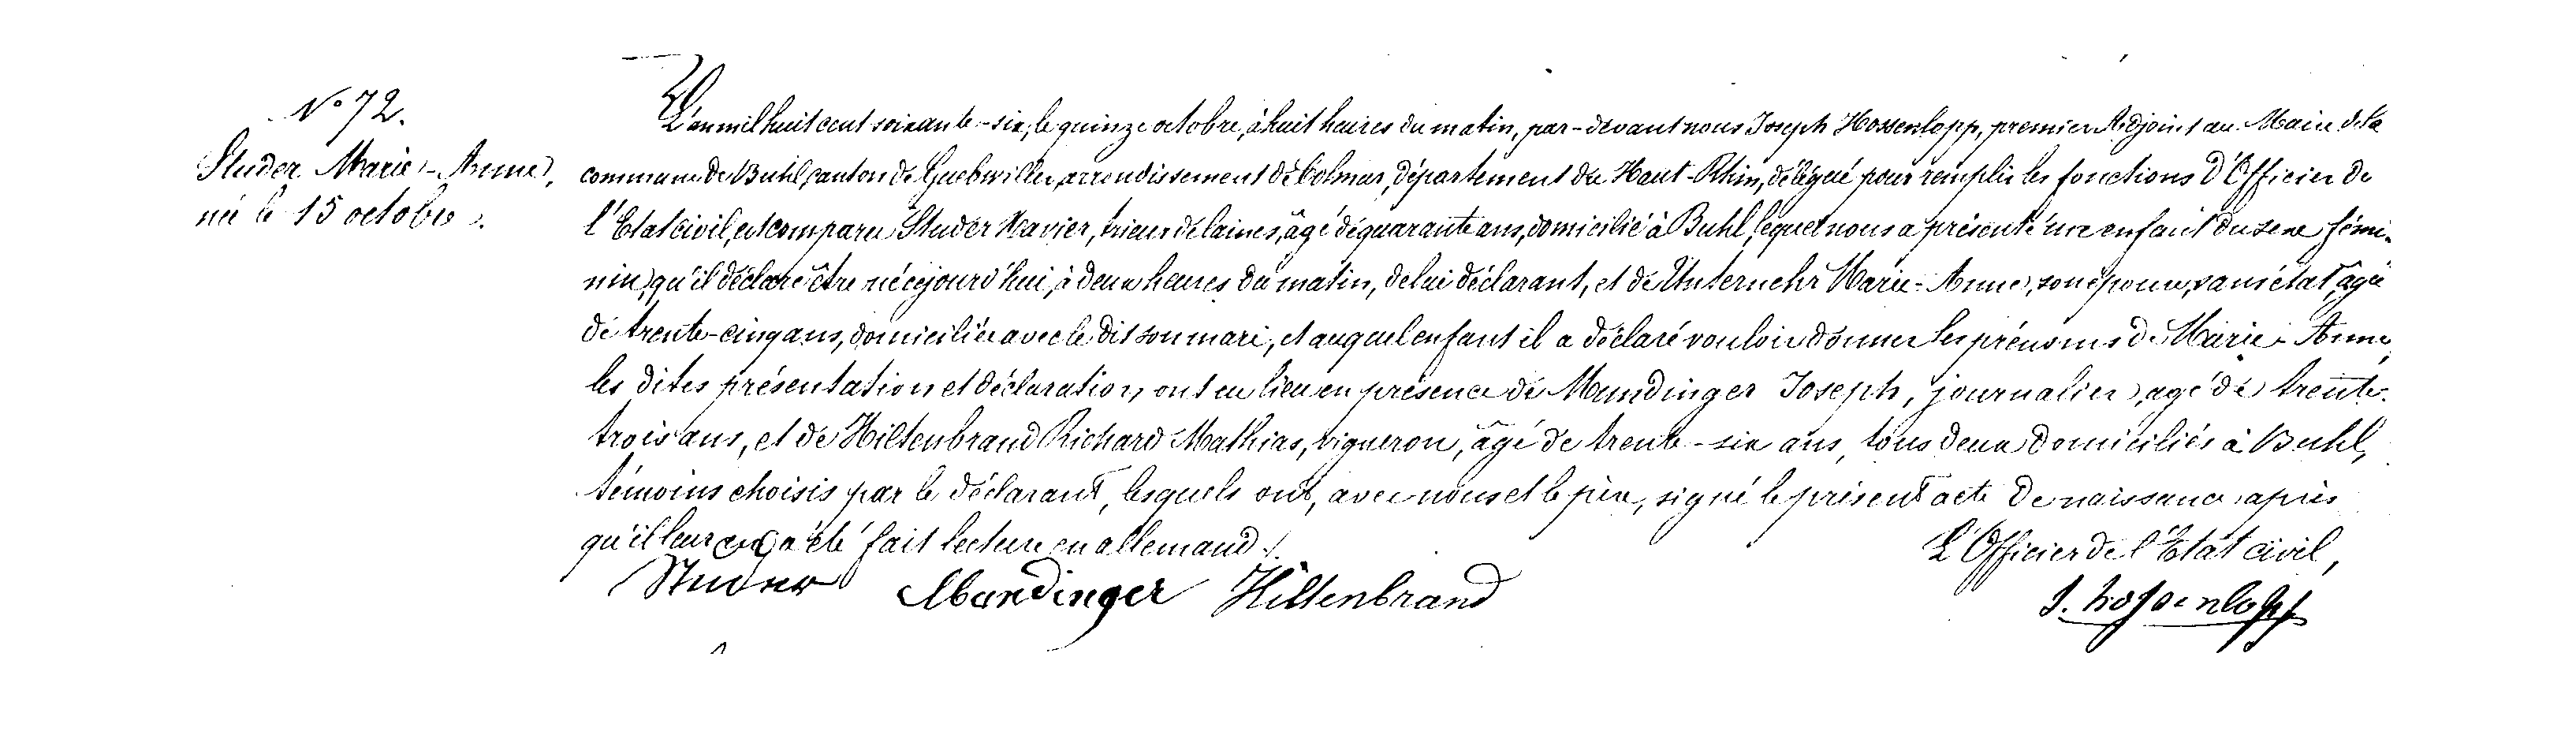 N° 72.
Studer Marie-Anne,
née le 15 octobre.
L'an mil huit cent soixante-six, le quinze octobre, à huit heures du matin, par-devant nous Joseph Hossenlopp, premier Adjoint au Maire de la
commune de Buhl, canton de Guebwiller, arrondissement de Colmar, département du Haut-Rhin, délégué pour remplir les fonctions d'Officier de
l'Etat civil, est comparu Studer Xavier, trieur de laines, âgé de quarante ans, domicilié à Buhl, lequel nous a présenté une enfant du sexe fémi-
nin, qu'il déclare être né cejourd'hui, à deux heures du matin, de lui déclarant, et de Unternehr Marie-Anne, son épouse, sans état, âgée
de trente-cinq ans, domiciliée avec le dit son mari, et auquel enfant il a déclaré vouloir donner les prénoms de Marie-Anne,
les dites présentation et déclaration ont eu lieu en présence de Mundinger Joseph, journalier, âgé de trente-
trois ans, et de Hiltenbrand Richard Mathias, vigneron, âgé de trente-six ans, tous deux domiciliés à Buhl,
témoins choisis par le déclarant, lesquels ont, avec nous et le père, signé le présent acte de naissance, après
qu'il leur en a été fait lecture en allemand.
L'Officier de l'Etat civil,
Studer Mundinger Hiltenbrand J. Hossenlopp